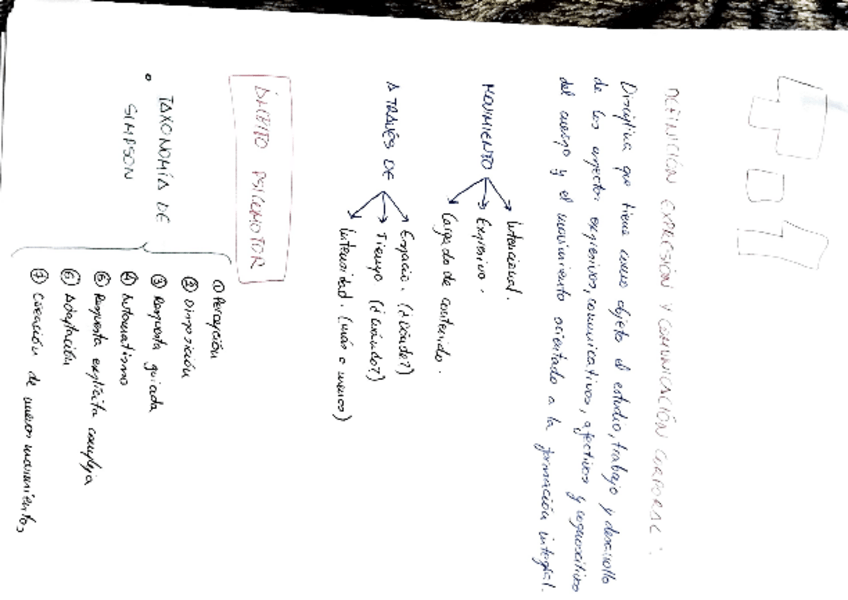 T.1
DEFINICIÓN EXPRESIÓN Y COMUNICACIÓN CORPORAL:
Disciplina que tiene como objeto el estudio, trabajo y desarrollo
de los aspectos expresivos, comunicativos, afectivos y cognoscitivos
del cuerpo y el movimiento orientado a la formación integral.
MOVIMIENTO
Intencional.
Expresivo.
Cargado de contenido.
A TRAVÉS DE
Espacio. (¿Dónde?)
Tiempo (¿Cuándo?)
Intensidad. (más o menos)
ÁMBITO PSICOMOTOR
TAXONOMÍA DE
SIMPSON
① Percepción
② Disposición
③ Respuesta guiada
④ Automatismo
⑤ Respuesta explícita compleja
⑥ Adaptación
⑦ Creación de nuevos movimientos